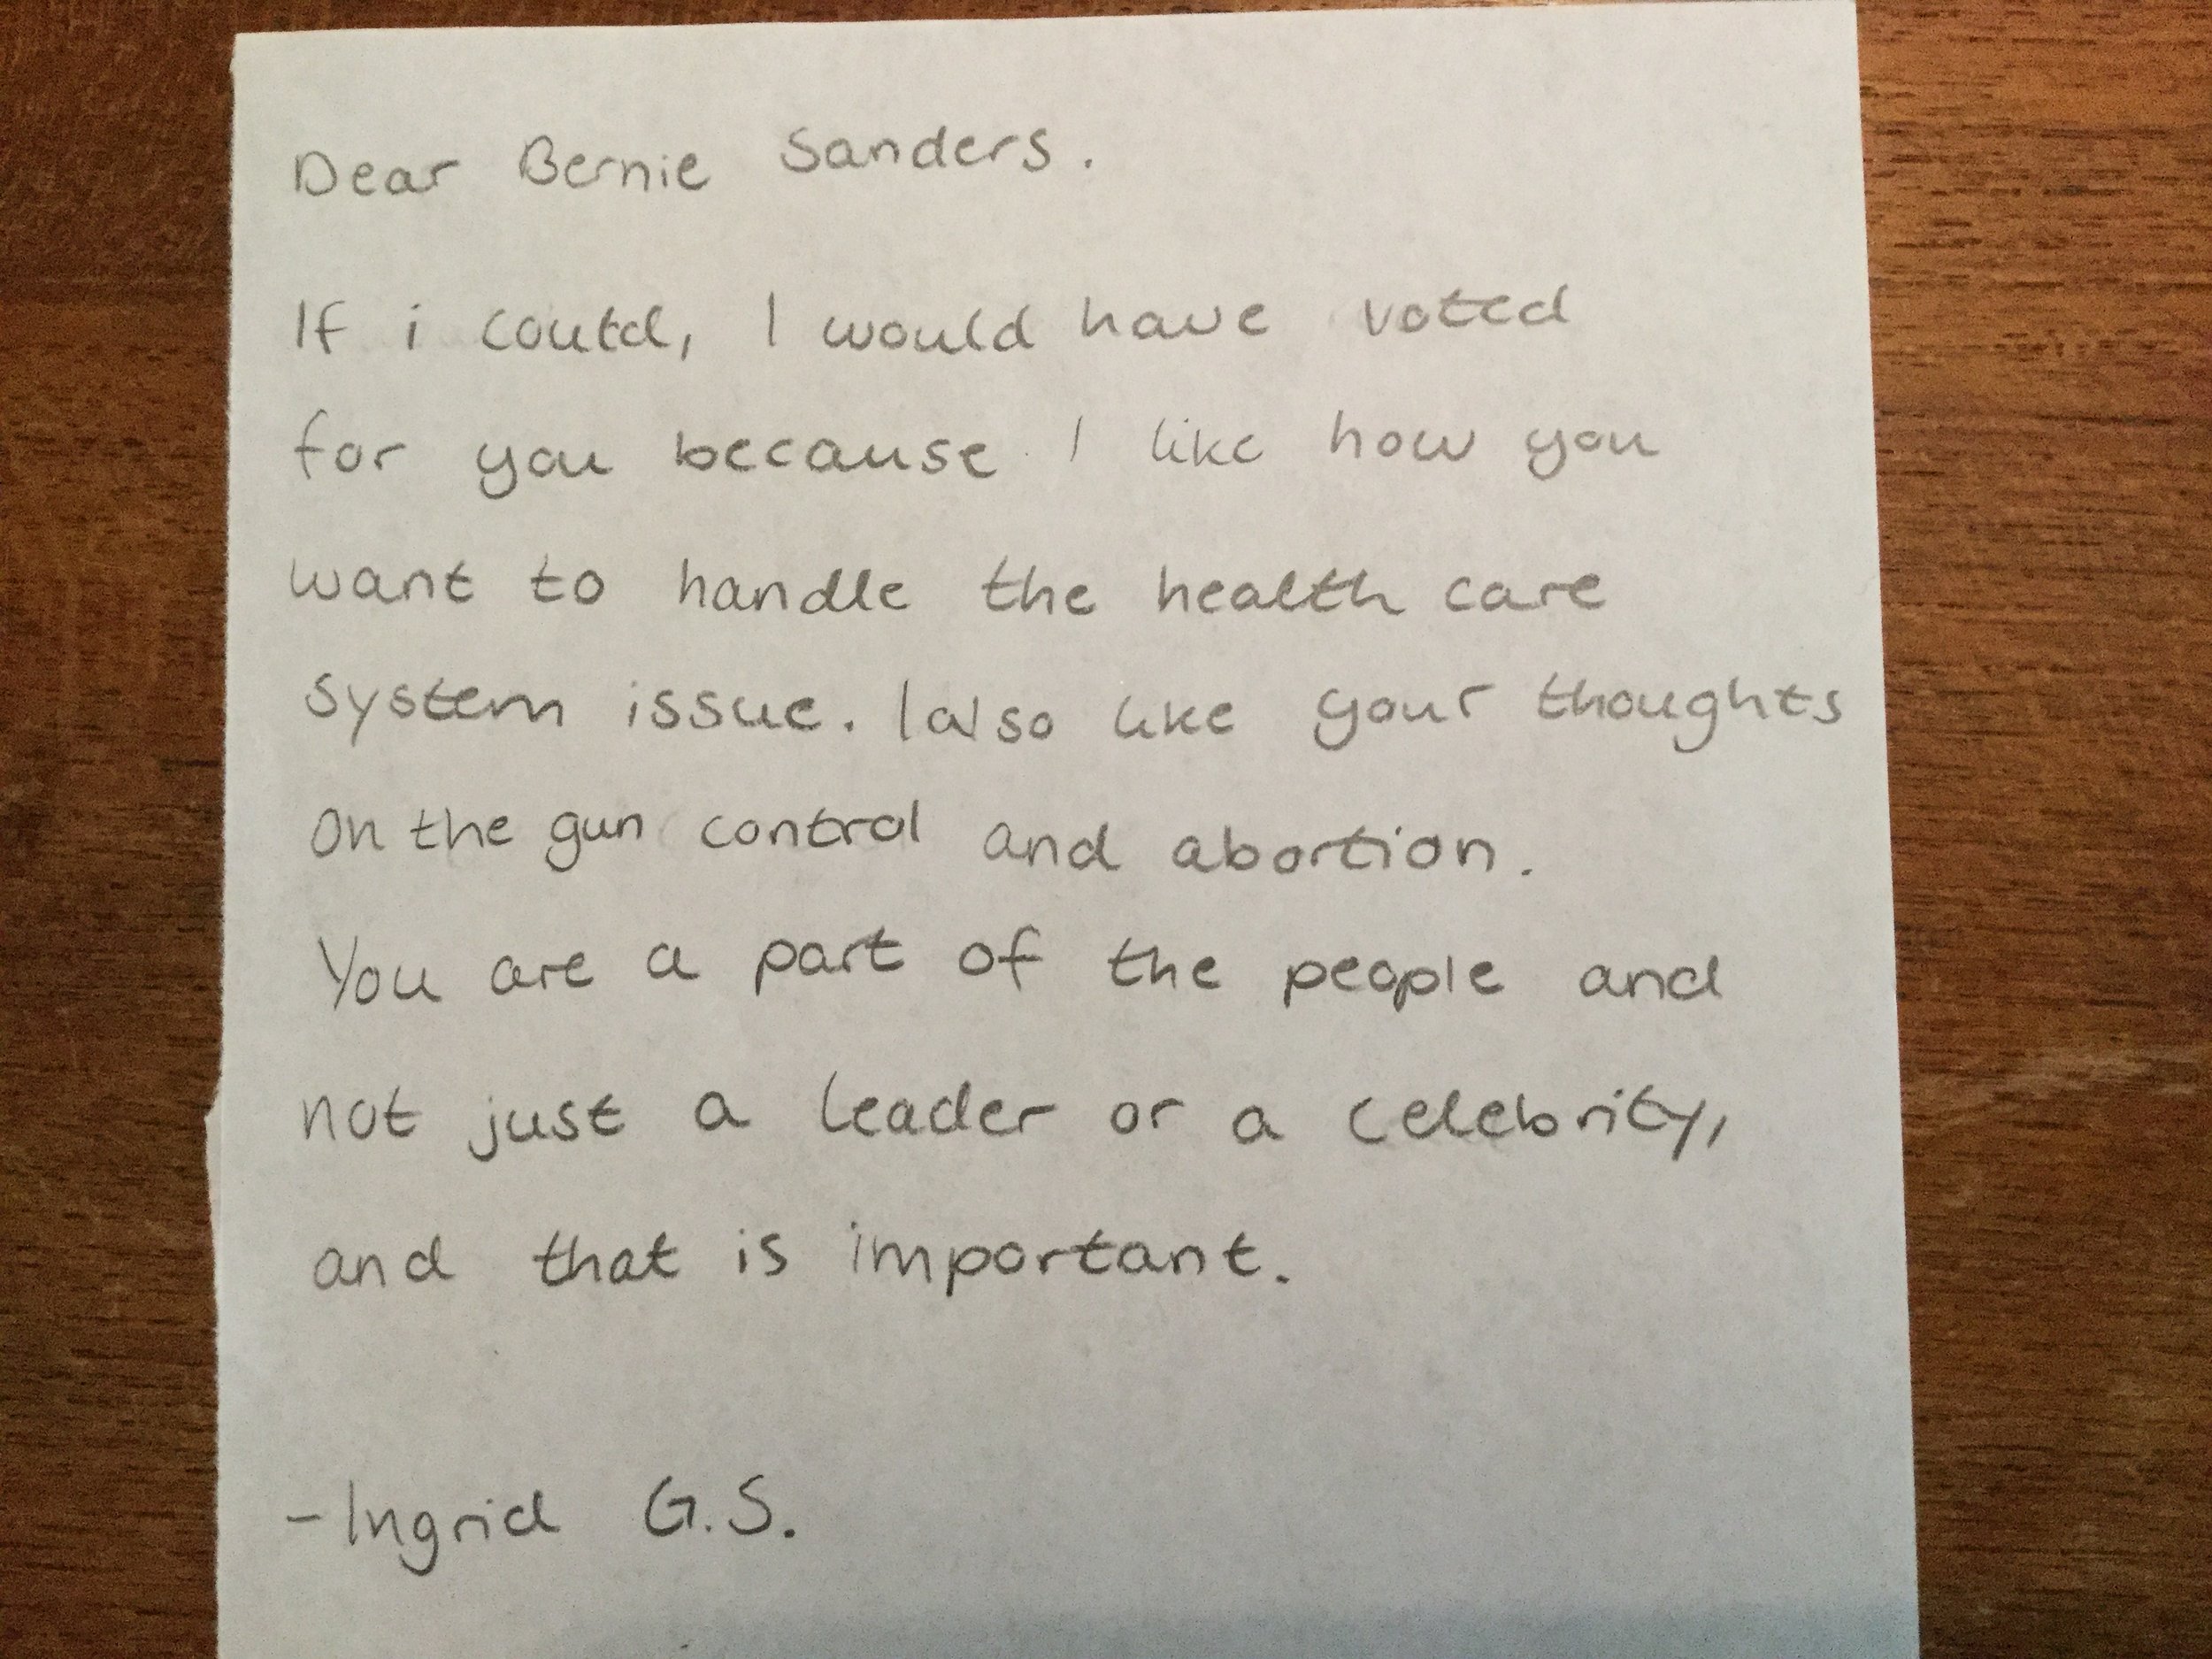 Dear Bernie Sanders.
If i could, I would have voted
for you because I like how you
want to handle the health care
system issue. I also like your thoughts
on the gun control and abortion.
You are a part of the people and
not just a leader or a celebrity,
and that is important.
-Ingrid G.S.